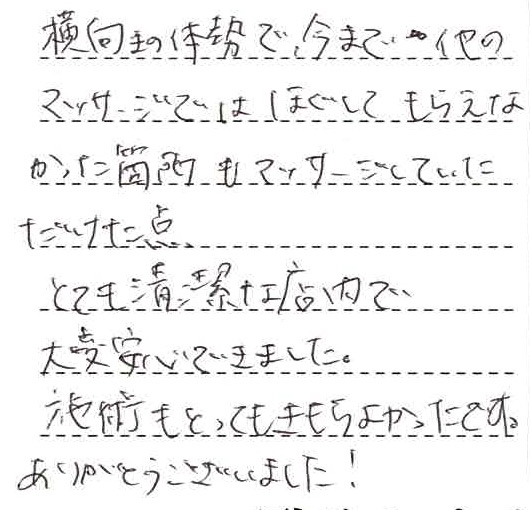 横向きの体勢で、今まで 他の
マッサージではほぐしてもらえな
かった箇所もマッサージしていた
だけた点、
とても清潔な店内で、
大変安心できました。
施術もとってもきもちよかったです。
ありがとうございました！